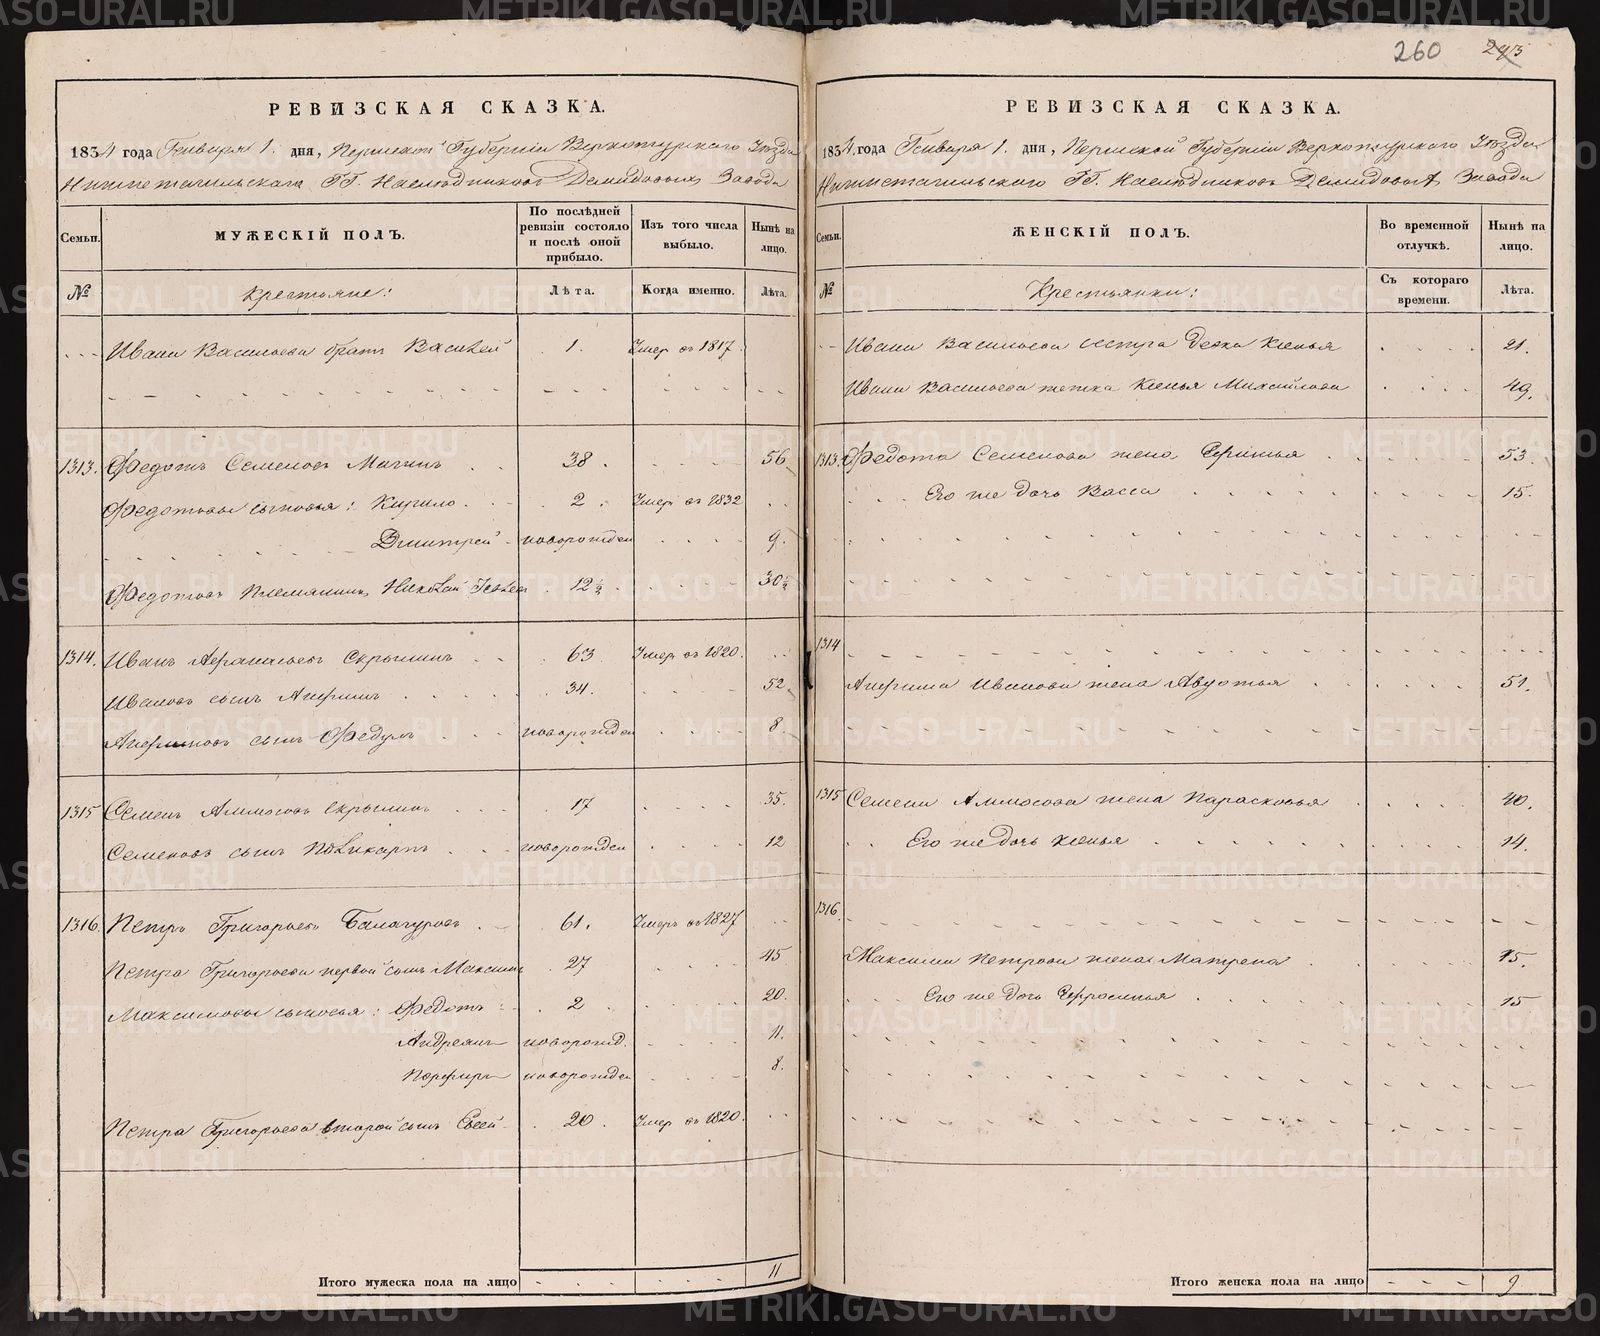 260 293
РЕВИЗСКАЯ СКАЗКА.
1834 года Генваря 1. дня, Пермской Губернiи Верхотурскаго Уѣзда
Нижнетагильскаго ГГ. Наслѣдниковъ Демидовыхъ Завода
Семьи. МУЖЕСКIЙ ПОЛЪ. По послѣдней ревизiи состояло и послѣ оной прибыло. Изъ того числа выбыло. Нынѣ на лицо.
№ Крестьяне: Лѣта. Когда именно. Лѣта.
Ивана Васильева братъ Василей 1. Умеръ въ 1817.
1313. Федотъ Семеновъ Мачинъ 38. 56
Федотовы сыновья: Кирило 2. Умеръ въ 1832
Дмитрей новорожден 9.
Федотовъ Племянникъ Николай 12½ 30½
1314. Иванъ Афанасьевъ Скрынинъ 63 Умеръ въ 1820.
Ивановъ сынъ Анфимъ 34. 52.
Анфимовъ сынъ Федулъ новорожден 8
1315 Семенъ Аммосовъ Скрынинъ 17 35.
Семеновъ сынъ Поликарпъ новорожден 12
1316. Петръ Григорьевъ Балачуровъ 61. Умеръ въ 1827
Петра Григорьева первой сынъ Максимъ 27 45
Максимовы сыновья: Федотъ 2 20.
Андреянъ новорожд. 11.
Порфиръ новорожден 8.
Петра Григорьева второй сынъ 20 Умеръ въ 1820.
Итого мужеска пола на лицо 11
РЕВИЗСКАЯ СКАЗКА.
1834 года Генваря 1. дня, Пермской Губернiи Верхотурскаго Уѣзда
Нижнетагильскаго ГГ. Наслѣдниковъ Демидовыхъ Завода
Семьи. ЖЕНСКIЙ ПОЛЪ. Во временной отлучкѣ. Нынѣ на лицо.
№ Крестьянки: Съ котораго времени. Лѣта.
Ивана Васильева сестра девка Ксенья 21.
Ивана Васильева тетка Ксенья Михайлова 49.
1313. Федота Семенова жена Ефимья 53.
Его же дочь Васса 15.
1314
Анфима Иванова жена Авдотья 51.
1315 Семена Аммосова жена Парасковья 40.
Его же дочь Ксенья 14.
1316
Максима Петрова жена Матрена 45.
Его же дочь Ефросинья 15
Итого женска пола на лицо 9
METRIKI.GASO-URAL.RU